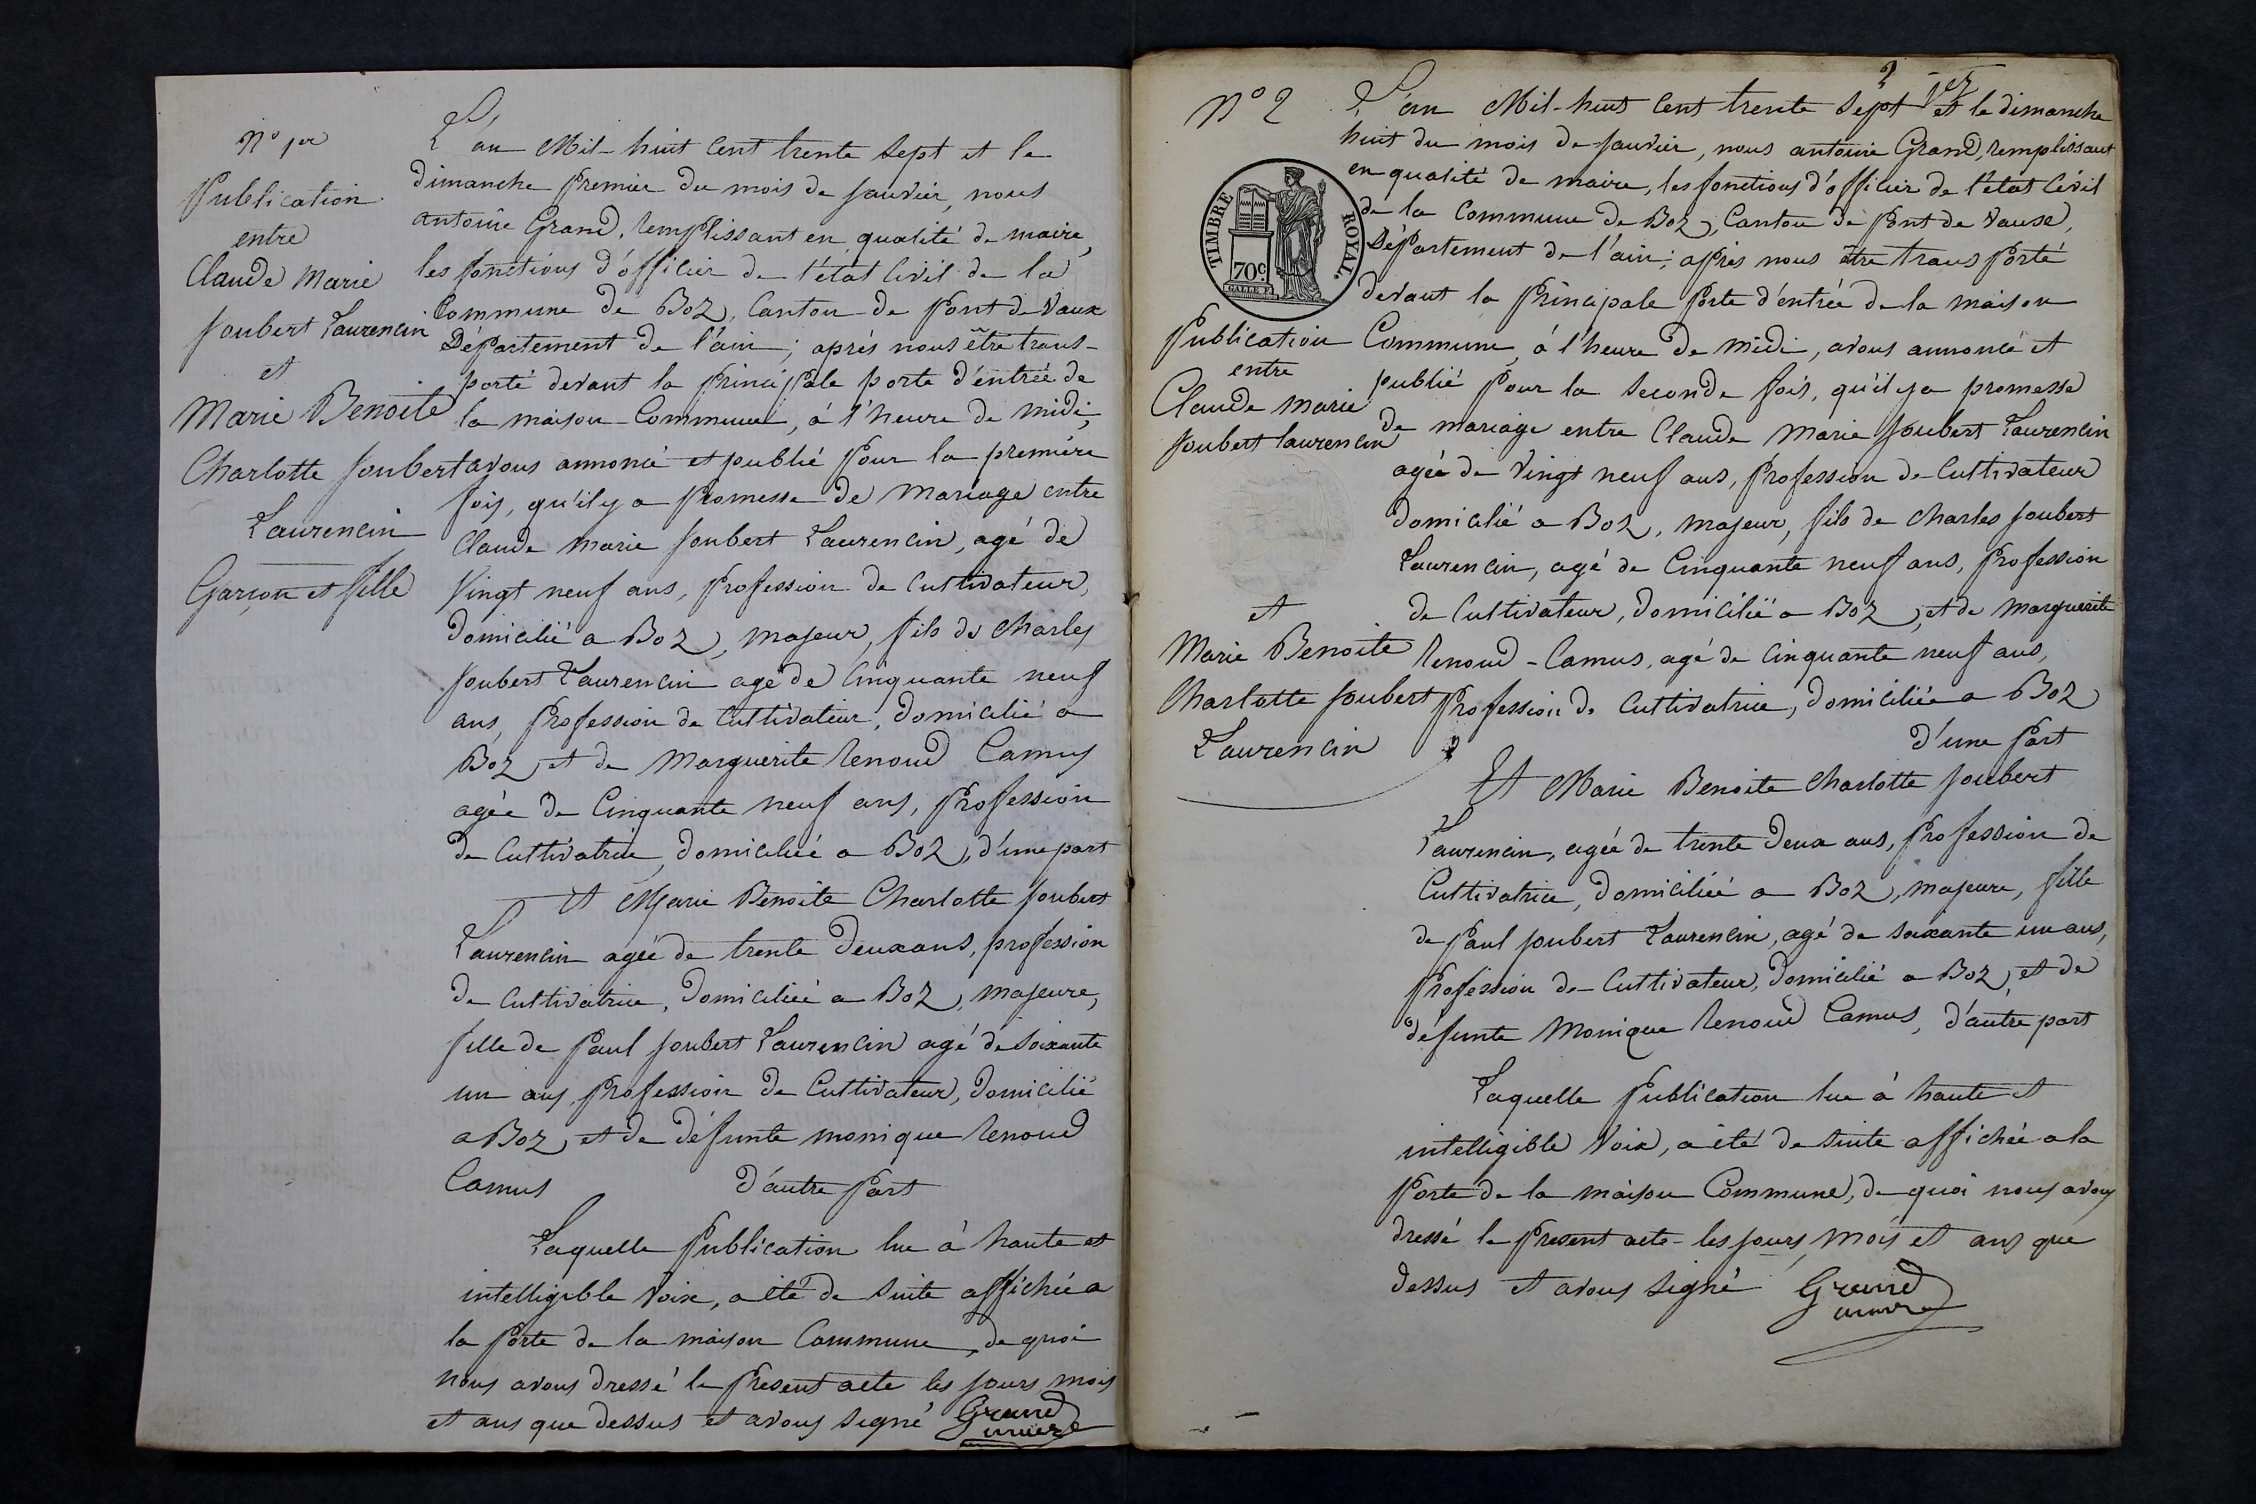 N° 1er
Publication
entre
Claude Marie
Joubert Laurencin
et
Marie Benoite
Charlotte Joubert
Laurencin
Garçon et fille
L'an Mil-huit cent trente sept et le
dimanche premier du mois de janvier, nous
antoine Grand, remplissant en qualité de maire,
les fonctions d'officier de l'état Civil de la
Commune de Boz, Canton de Pont de Vaux
Département de l'ain; après nous être trans-
porté devant la principale porte d'entrée de
la maison Commune, à l'heure de midi,
avons annoncé et publié pour la première
fois, qu'il y a promesse de mariage entre
Claude marie Joubert Laurencin, agé de
Vingt neuf ans, profession de Cultivateur,
domicilié a Boz, majeur, fils de Charles
Joubert Laurencin agé de Cinquante neuf
ans, profession de Cultivateur, domicilié a
Boz, et de Marguerite Renoud Camus
agée de Cinquante neuf ans, profession
de Cultivatrice, domiciliée a Boz, d'une part
Et Marie Benoite Charlotte Joubert
Laurencin agée de trente deux ans, profession
de Cultivatrice, domiciliée a Boz, majeure,
fille de Paul Joubert Laurencin agé de soixante
un ans, profession de Cultivateur, domicilié
a Boz, et de défunte monique Renoud
Camus d'autre part
Laquelle publication lue à haute et
intelligible voix, a été de suite affichée a
la porte de la maison Commune, de quoi
nous avons dressé le présent acte les jours mois
et ans que dessus et avons signé Grand
maire
2
N° 2
TIMBRE ROYAL.
70c.
Publication
entre
Claude marie
Joubert laurencin
et
Marie Benoite
Charlotte Joubert
Laurencin
L'an Mil-huit Cent trente sept et le dimanche
huit du mois de janvier, nous antoine Grand, remplissant
en qualité de maire, les fonctions d'officier de l'état Civil
de la Commune de Boz, Canton de Pont de Vaux,
Département de l'ain; après nous être transporté
devant la principale porte d'entrée de la maison
Commune, à l'heure de midi, avons annoncé et
publié pour la seconde fois, qu'il y a promesse
de mariage entre Claude Marie Joubert Laurencin
agée de Vingt neuf ans, profession de Cultivateur
domicilié a Boz, majeur, fils de Charles Joubert
Laurencin, agé de Cinquante neuf ans, profession
de Cultivateur, domicilié a Boz, et de Marguerite
Renoud-Camus, agé de Cinquante neuf ans,
profession de Cultivatrice, domiciliée a Boz
d'une part
Et Marie Benoite Charlotte Joubert
Laurencin, agée de trente deux ans, profession de
Cultivatrice, domiciliée a Boz, majeure, fille
de Paul Joubert Laurencin, agé de soixante un ans,
profession de Cultivateur, domicilié a Boz, et de
défunte Monique Renoud Camus, d'autre part
Laquelle publication lue à haute et
intelligible voix, a été de suite affichée a la
porte de la maison Commune, de quoi nous avons
dressé le présent acte les jours, mois et ans que
dessus et avons signé Grand
maire